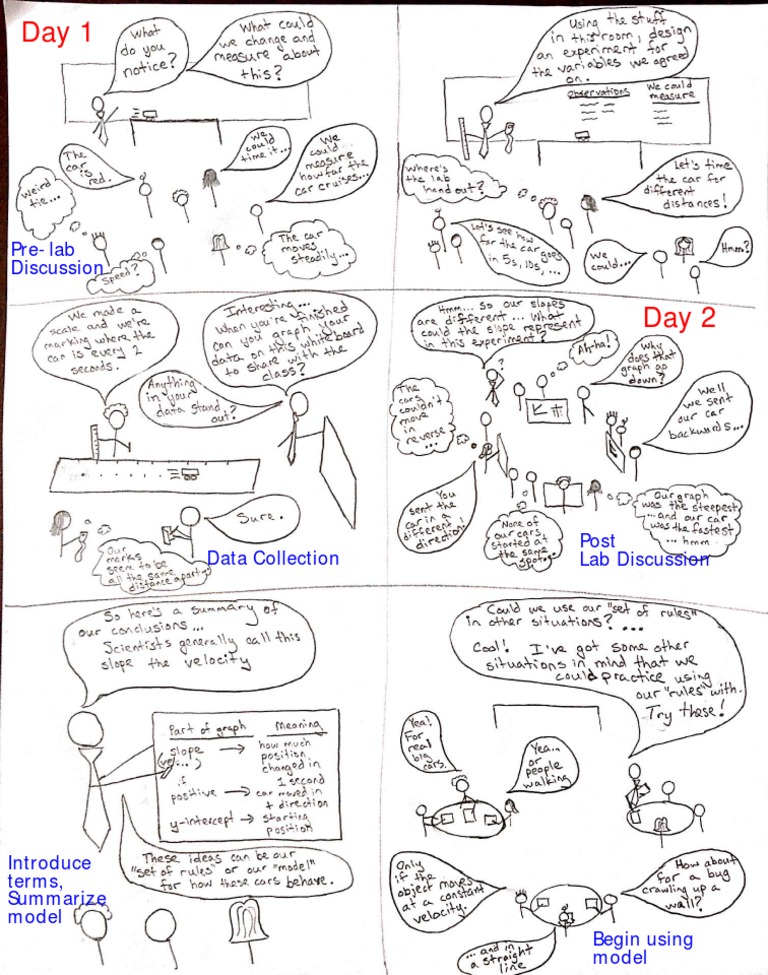 Day 1
What
do you
notice?
What could
we change and
measure about
this?
The
car
is
red.
We
could
time it...
We
could
measure
how far the
car cruises...
weird
tie...
Speed?
The car
moves
steadily...
Pre- lab
Discussion
Using the stuff
in this room, design
an experiment for
the variables we agreed
on.
Observations
We could
measure
Where's
the lab
handout?
Let's time
the car for
different
distances!
Let's see how
far the car goes
in 5s, 10s, ...
We
could...
Hmm?
We made a
scale and we're
marking where the
car is every 2
seconds.
Interesting...
When you're finished
can you graph your
data on this whiteboard
to share with the
class?
Anything
in your
data stand
out?
Sure.
Our
marks
seem to be
all the same
distance apart...
Data Collection
Day 2
Hmm... so our slopes
are different... What
could the slope represent
in this experiment?
?
Ah-ha!
Why
does that
graph go
down?
The
cars
couldn't
move
in
reverse
...
Well
we sent
our car
backwards...
You
sent the
car in a
different
direction!
None of
our cars
started at
the same
spot...
Our graph
was the steepest
...and our car
was the fastest
... hmm
Post
Lab Discussion
So here's a summary of
our conclusions...
Scientists generally call this
slope the velocity
Part of graph Meaning
slope → how much
position
changed in
1 second
if
positive → car moved in
+ direction
y-intercept → starting
position
These ideas can be our
"set of rules" or our "model"
for how these cars behave.
Introduce
terms,
Summarize
model
Could we use our "set of rules"
in other situations? ...
Cool! I've got some other
situations in mind that we
could practice using
our "rules" with.
Try these!
Yea!
For
real
big
cars.
Yea...
or
people
walking
Only
if the
object moves
at a constant
velocity.
How about
for a bug
crawling up a
wall?
... and in
a straight
line
Begin using
model